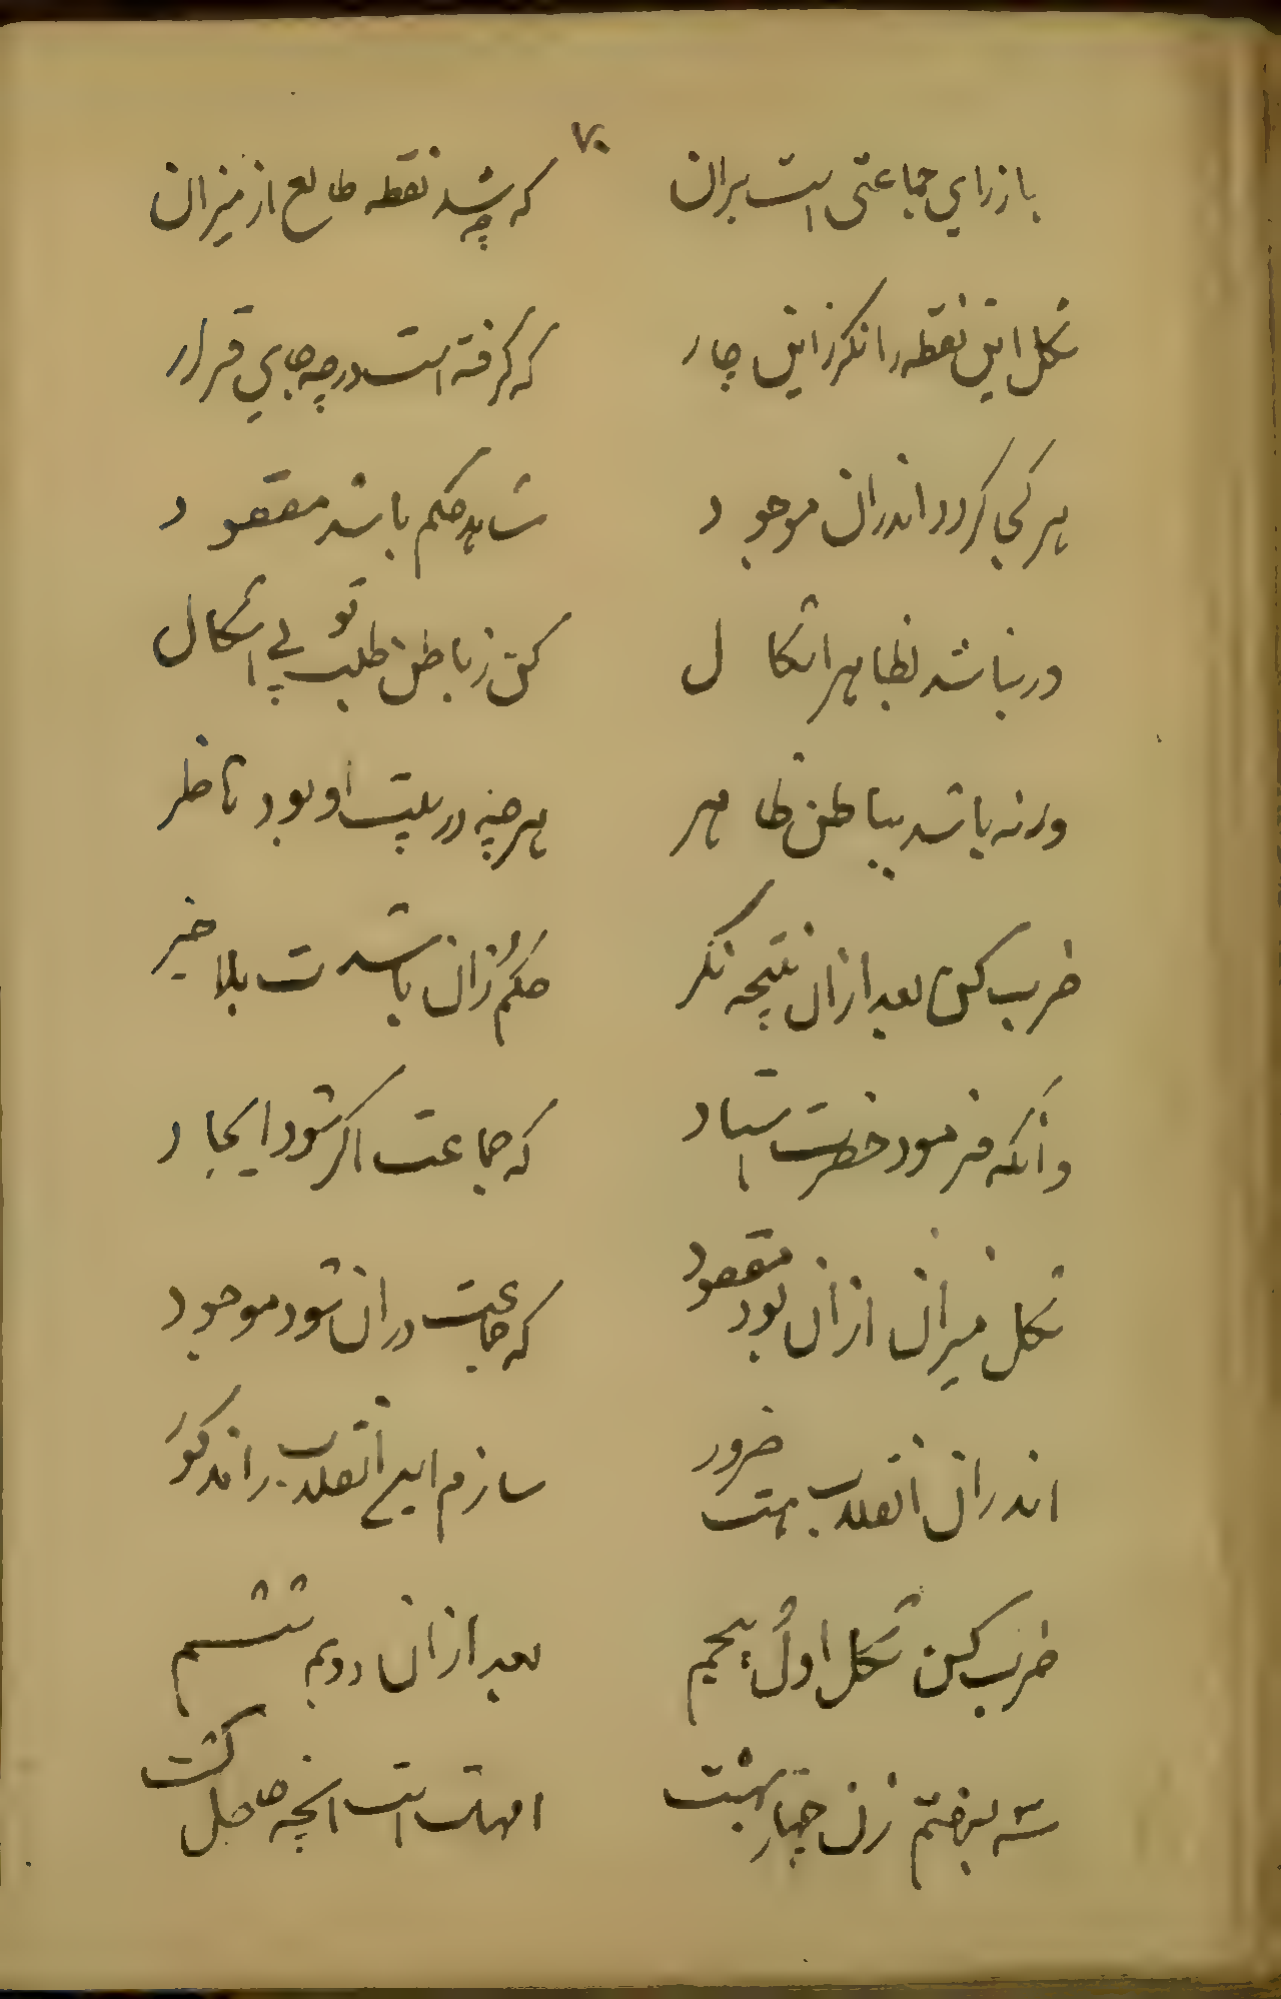 ۷۰
باز رای جماعتی است بران که چه شد نقطه طالع از میزان
شکل این نقطه را نکر زین چار که کرفته است در چه جای قرار
هر کجا کردد اندران موجود شاهد حکم باشد مقصود
ور نباشد بظاهر اشکال کن ز باطن طلب تو بے اشکال
ور نه باشد بباطن ظاهر هر چه در بیت او بود ناظر
ضرب کن بعد ازان نتیجه نکر حکم زان باشدت بلا خیر
وانکه فرمود حضرت استاد که جماعت اکر شود ایجاد
شکل میزان ازان بود مقصود که جماعت دران شود موجود
اندران انقلاب هست ضرور سازم این انقلاب را مذکور
ضرب کن شکل اول پنجم بعد ازان دویم ششم
سه بهفتم زن چهار بهشت امهات است انچه حاصل کشت